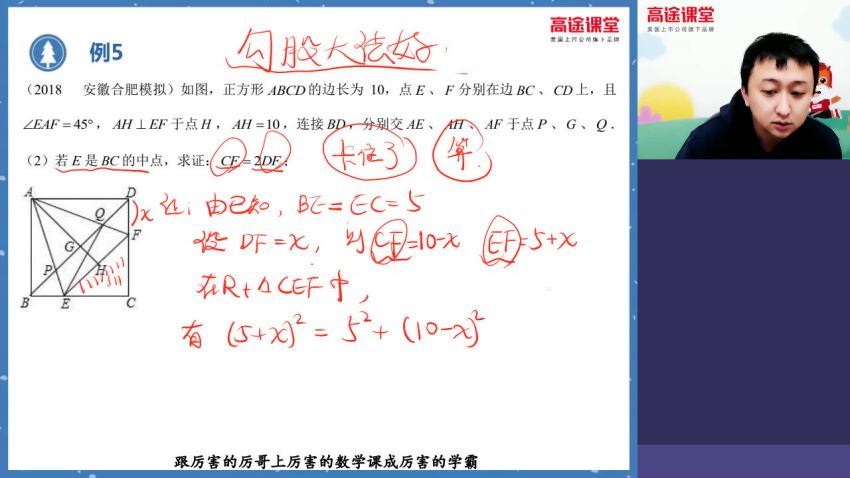 例5
勾股大法好
高途课堂
美国上市公司旗下品牌
高途课堂
美国上市公司旗下品牌
（2018 安徽合肥模拟）如图，正方形 ABCD 的边长为 10，点 E 、 F 分别在边 BC 、 CD 上，且
∠EAF = 45°， AH ⊥ EF 于点 H ， AH =10 ，连接 BD ，分别交 AE 、 AH 、 AF 于点 P 、 G 、 Q ．
（2）若 E 是 BC 的中点，求证： CF = 2DF ；
卡住了
算.
A
D
x
Q
F
G
P
H
B
E
C
证: 由已知, BE=EC=5
设 DF=x, 则 CF=10-x EF=5+x
在Rt△CEF中,
有 (5+x)² = 5² + (10-x)²
跟厉害的历哥上厉害的数学课成厉害的学霸